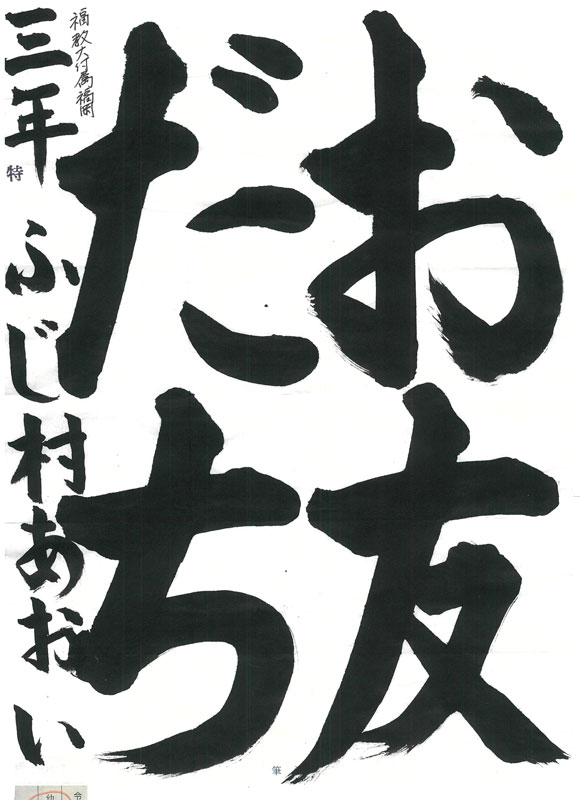 お友
だち
三年 ふじ村あおい
福教大付属福岡
特
筆
令
幼